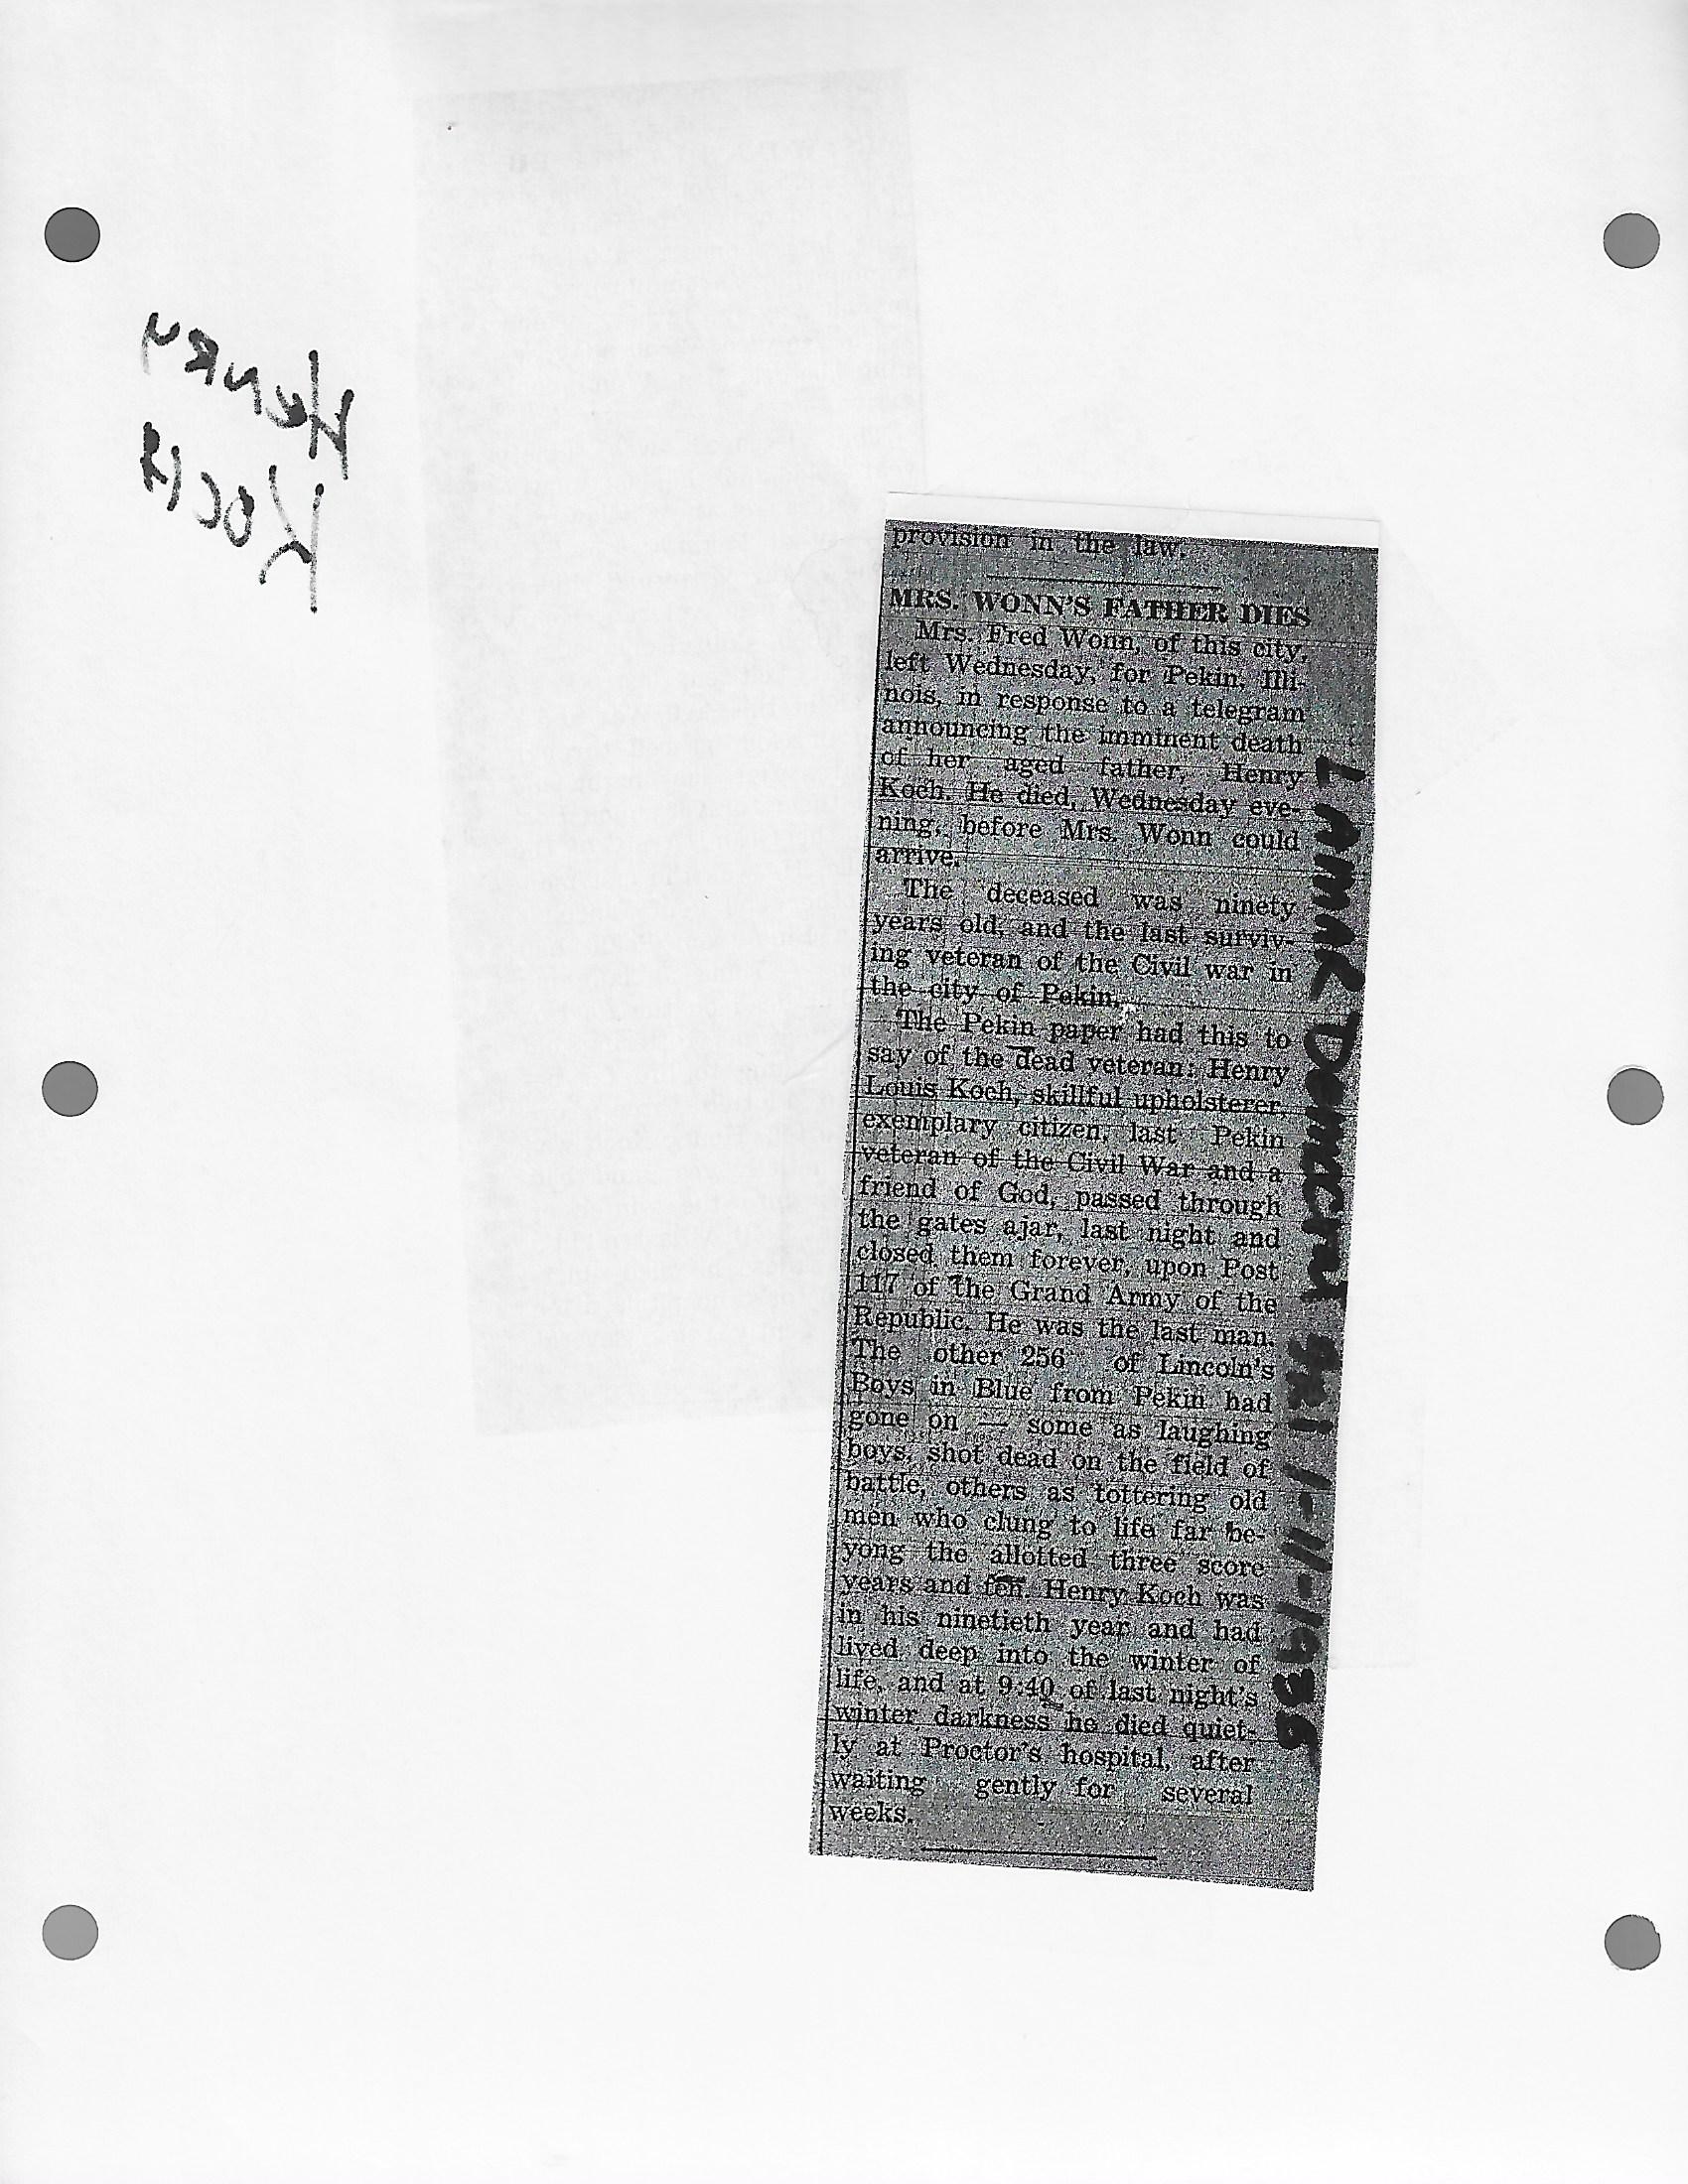 Henry
Koch
provision in the law.
MRS. WONN'S FATHER DIES
Mrs. Fred Wonn, of this city,
left Wednesday, for Pekin, Illi-
nois, in response to a telegram
announcing the imminent death
of her aged father, Henry
Koch. He died, Wednesday eve-
ning, before Mrs. Wonn could
arrive.
The deceased was ninety
years old, and the last surviv-
ing veteran of the Civil war in
the city of Pekin.
The Pekin paper had this to
say of the dead veteran: Henry
Louis Koch, skillful upholsterer,
exemplary citizen, last Pekin
veteran of the Civil War and a
friend of God, passed through
the gates ajar, last night and
closed them forever, upon Post
117 of the Grand Army of the
Republic. He was the last man.
The other 256 of Lincoln's
Boys in Blue from Pekin had
gone on — some as laughing
boys, shot dead on the field of
battle, others as tottering old
men who clung to life far be-
yong the allotted three score
years and ten. Henry Koch was
in his ninetieth year and had
lived deep into the winter of
life, and at 9:40 of last night's
winter darkness he died quiet-
ly at Proctor's hospital, after
waiting gently for several
weeks.
LAMAR Democrat FRI 1-11-1935